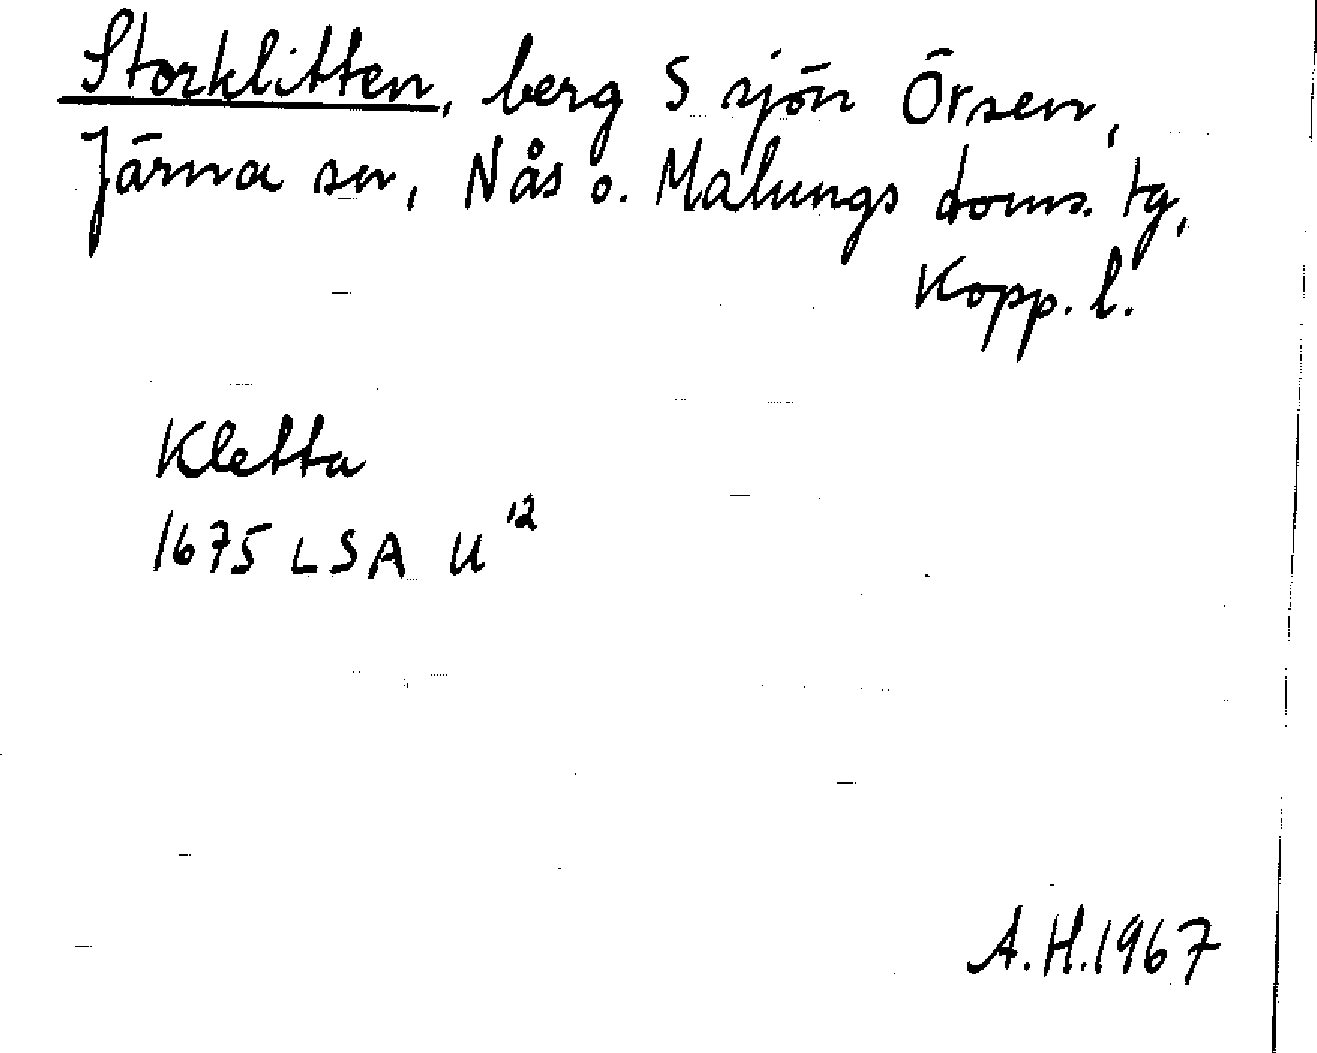 Storklitten, berg S sjön Örsen,
Järna sn, Nås o. Malungs doms. tg,
Kopp. l.
Kletta
1675 LSA U 12
A.H. 1967